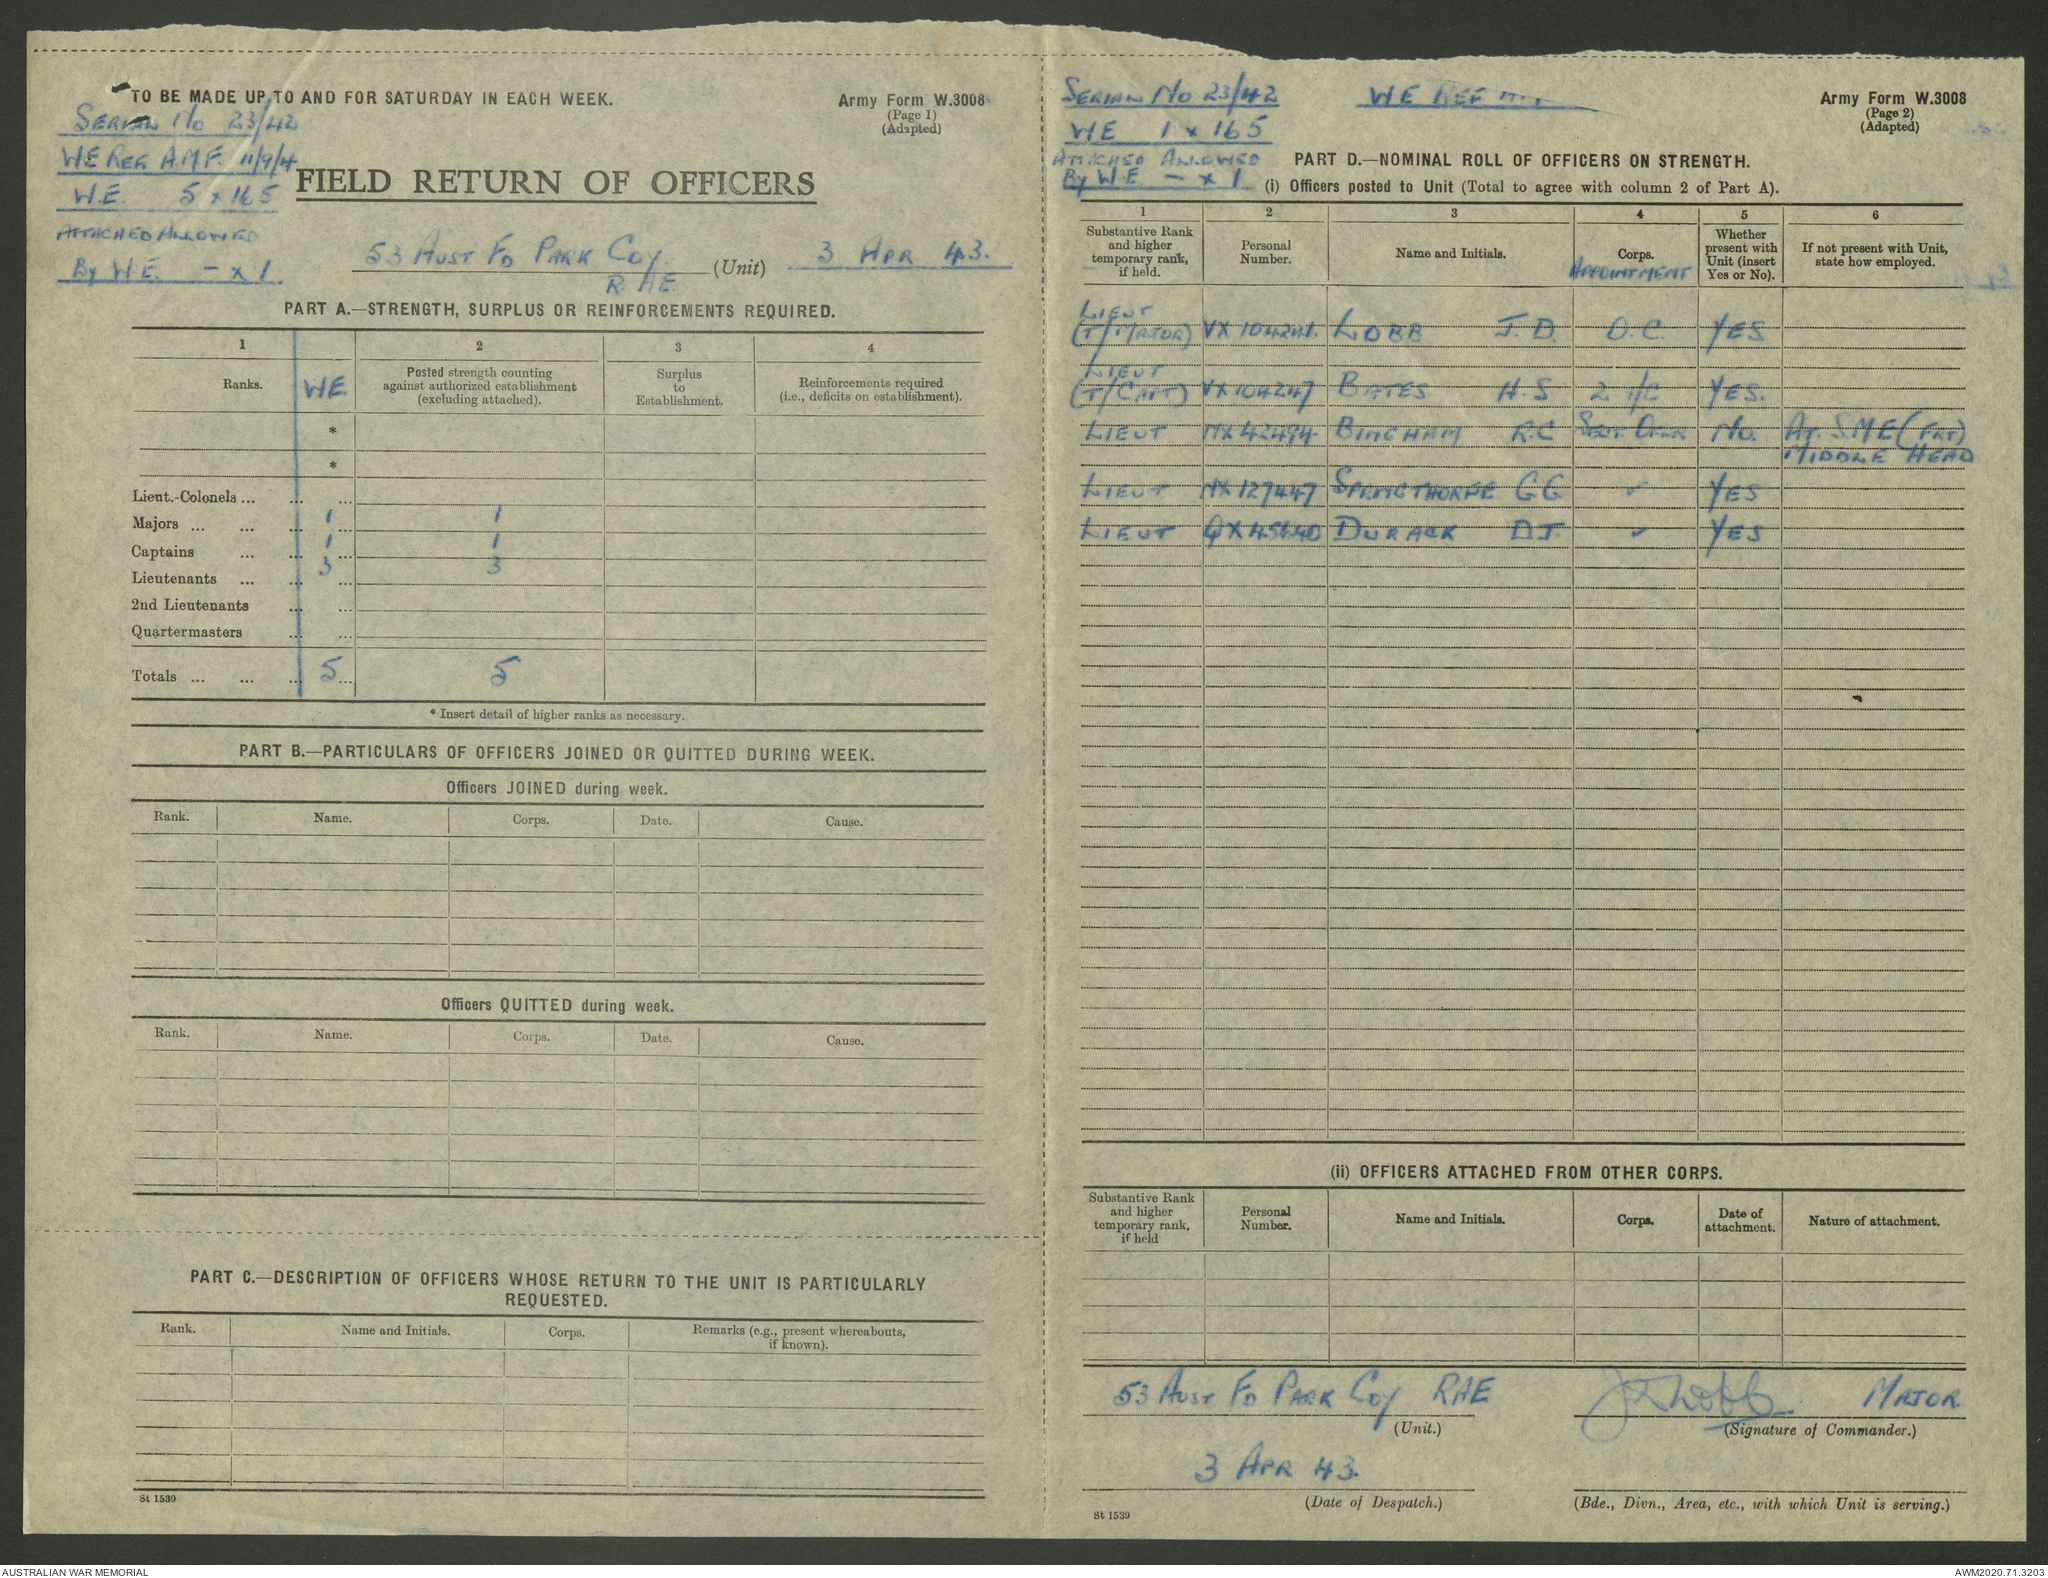 TO BE MADE UP TO AND FOR SATURDAY IN EACH WEEK.
Army Form W.3008
(Page 1)
(Adapted)
SERIAL No 23/42
WE REF A.M.F. 11/9/4
W.E. 5 x 165
ATTACHED ALLOWED
By W.E. - x 1.
FIELD RETURN OF OFFICERS
53 AUST FD PARK COY. (Unit) 3 APR 43.
R.A.E.
PART A.—STRENGTH, SURPLUS OR REINFORCEMENTS REQUIRED.
1 2 3 4
Ranks. WE Posted strength counting against authorized establishment (excluding attached). Surplus to Establishment. Reinforcements required (i.e., deficits on establishment).
*
*
Lieut.-Colonels ... ... ...
Majors ... ... ... 1 ... 1
Captains ... ... 1 ... 1
Lieutenants ... ... 3 ... 3
2nd Lieutenants ... ...
Quartermasters ... ...
Totals ... ... ... 5 ... 5
* Insert detail of higher ranks as necessary.
PART B.—PARTICULARS OF OFFICERS JOINED OR QUITTED DURING WEEK.
Officers JOINED during week.
Rank. Name. Corps. Date. Cause.
Officers QUITTED during week.
Rank. Name. Corps. Date. Cause.
PART C.—DESCRIPTION OF OFFICERS WHOSE RETURN TO THE UNIT IS PARTICULARLY
REQUESTED.
Rank. Name and Initials. Corps. Remarks (e.g., present whereabouts, if known).
St 1539
SERIAL No 23/42 WE REF
WE 1 x 165
ATTACHED ALLOWED
By W.E - x 1
Army Form W.3008
(Page 2)
(Adapted)
PART D.—NOMINAL ROLL OF OFFICERS ON STRENGTH.
(i) Officers posted to Unit (Total to agree with column 2 of Part A).
1 2 3 4 5 6
Substantive Rank and higher temporary rank, if held. Personal Number. Name and Initials. Corps. APPOINTMENT Whether present with Unit (insert Yes or No). If not present with Unit, state how employed.
LIEUT
(T/MAJOR) VX 104241 LOBB J.D. O.C. YES
LIEUT
(T/CAPT) VX 104247 BATES H.S 2 I/C YES.
LIEUT NX 42494 BINGHAM R.C No. AT. S.M.E (FRT)
MIDDLE HEAD
LIEUT NX 127447 SPRINGTHORPE G.G. ✓ YES
LIEUT DURACK D.J. ✓ YES
(ii) OFFICERS ATTACHED FROM OTHER CORPS.
Substantive Rank and higher temporary rank, if held Personal Number. Name and Initials. Corps. Date of attachment. Nature of attachment.
53 AUST FD PARK COY RAE
(Unit.)
J D Lobb MAJOR.
(Signature of Commander.)
3 APR 43.
(Date of Despatch.)
(Bde., Divn., Area, etc., with which Unit is serving.)
St 1539
AUSTRALIAN WAR MEMORIAL
AWM2020.71.3203